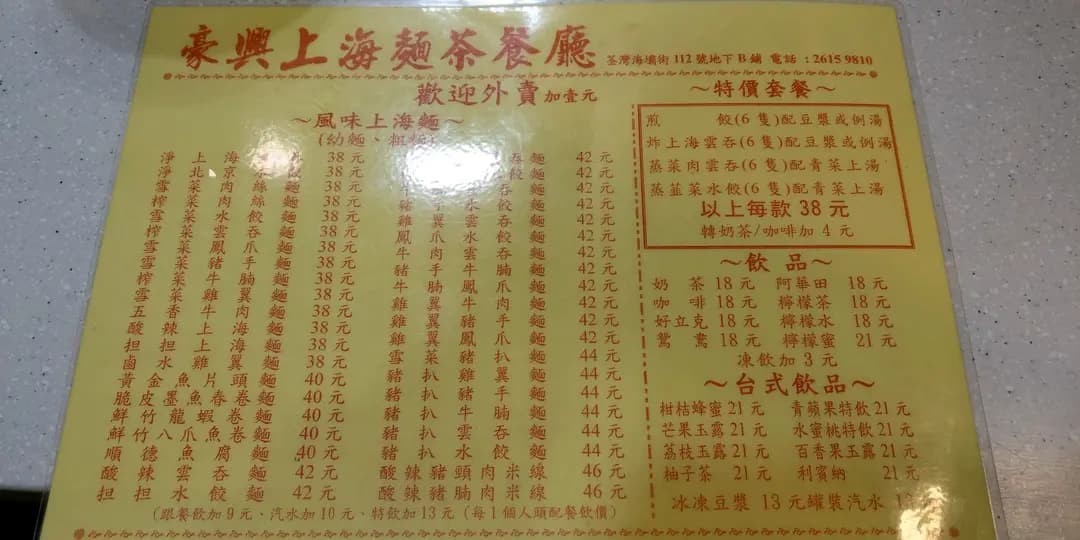 豪興上海麵茶餐廳 荃灣海壩街 112 號地下 B 鋪 電話 : 2615 9810
歡迎外賣 加壹元
～風味上海麵～
(幼麵、粗麵)
淨 上 海 38 元
淨 北 京 水 餃 38 元
雪 菜 肉 絲 麵 38 元
榨 菜 肉 絲 麵 38 元
雪 菜 水 餃 麵 38 元
榨 菜 雲 吞 麵 38 元
雪 菜 鳳 爪 麵 38 元
雪 菜 豬 手 麵 38 元
榨 菜 牛 腩 麵 38 元
雪 菜 雞 翼 麵 38 元
五 香 牛 肉 麵 38 元
酸 辣 上 海 麵 38 元
担 担 上 海 麵 38 元
鹵 水 雞 翼 麵 38 元
黃 金 魚 片 頭 麵 40 元
脆 皮 墨 魚 春 卷 麵 40 元
鮮 竹 龍 蝦 卷 麵 40 元
鮮 竹 八 爪 魚 卷 麵 40 元
順 德 魚 腐 麵 40 元
酸 辣 雲 吞 麵 42 元
担 担 水 餃 麵 42 元
吞 麵 42 元
餃 麵 42 元
吞 麵 42 元
水 餃 麵 42 元
雞 翼 雲 吞 麵 42 元
鳳 爪 水 餃 麵 42 元
牛 肉 雲 吞 麵 42 元
豬 手 牛 腩 麵 42 元
牛 腩 鳳 爪 麵 42 元
雞 翼 牛 肉 麵 42 元
雞 翼 豬 手 麵 42 元
雞 翼 鳳 爪 麵 42 元
雪 菜 豬 扒 麵 44 元
豬 扒 雞 翼 麵 44 元
豬 扒 豬 手 麵 44 元
豬 扒 牛 腩 麵 44 元
豬 扒 雲 吞 麵 44 元
豬 扒 水 餃 麵 44 元
酸 辣 豬 頸 肉 米 線 46 元
酸 辣 豬 腩 肉 米 線 46 元
(跟餐飲加 9 元、汽水加 10 元、特飲加 13 元 (每 1 個人頭配餐飲價)
～特價套餐～
煎 餃(6 隻)配豆漿或例湯
炸上海雲吞(6 隻)配豆漿或例湯
蒸菜肉雲吞(6 隻)配青菜上湯
蒸韮菜水餃(6 隻)配青菜上湯
以上每款 38 元
轉奶茶/咖啡加 4 元
～飲 品～
奶 茶 18 元 阿華田 18 元
咖 啡 18 元 檸檬茶 18 元
好立克 18 元 檸檬水 18 元
鴛 鴦 18 元 檸檬蜜 21 元
凍飲加 3 元
～台式飲品～
柑桔蜂蜜 21 元 青蘋果特飲 21 元
芒果玉露 21 元 水蜜桃特飲 21 元
荔枝玉露 21 元 百香果玉露 21 元
柚子茶 21 元 利賓納 21 元
冰凍豆漿 13 元 罐裝汽水